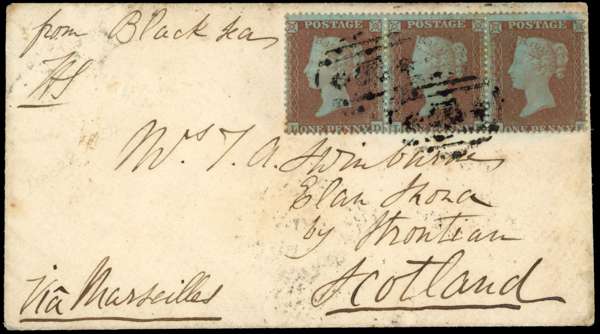 from Black Sea
HS
POSTAGE POSTAGE POSTAGE
ONE PENNY ONE PENNY
Mrs T. A. Swinburne
Elan Shona
by Strontian
Scotland
Via Marseilles